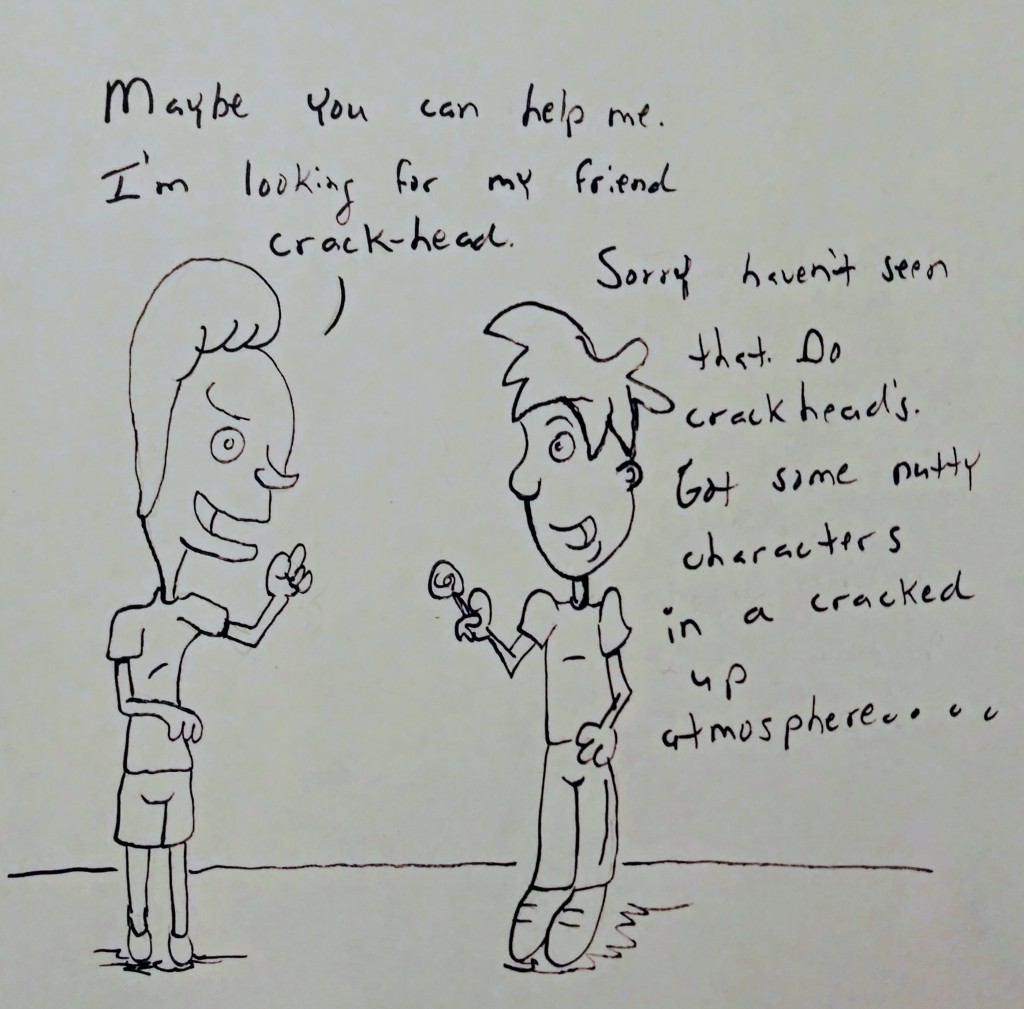 Maybe you can help me.
I'm looking for my friend
crack-head.
Sorry haven't seen
that. Do
crackhead's.
Got some nutty
characters
in a cracked
up
atmosphere....